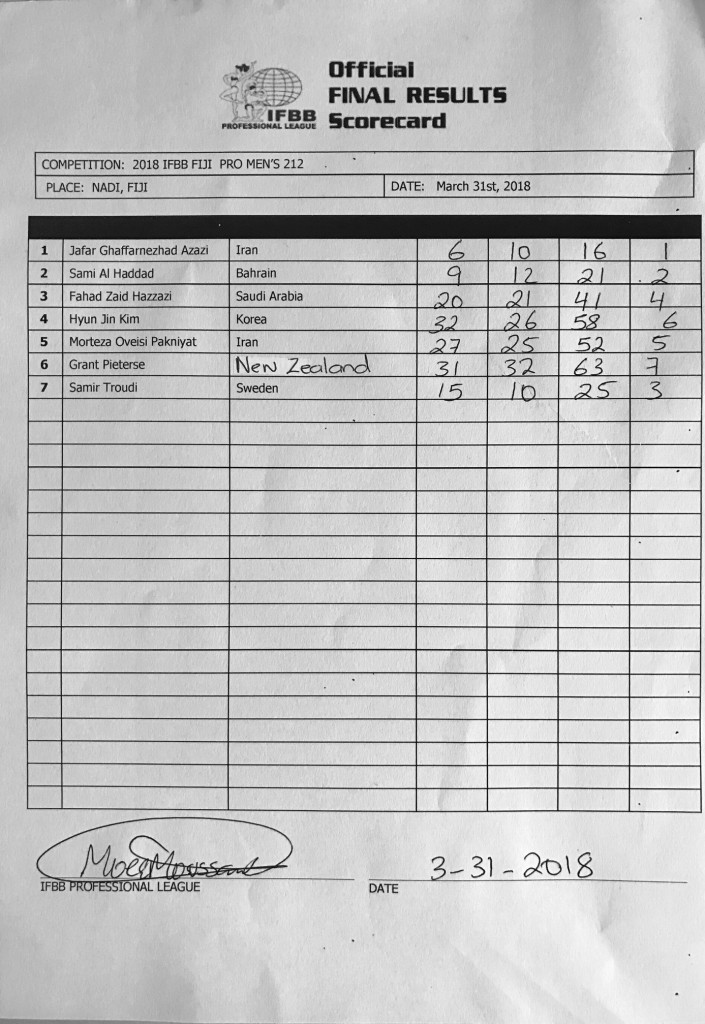 Official
FINAL RESULTS
IFBB
PROFESSIONAL LEAGUE
Scorecard
COMPETITION: 2018 IFBB FIJI PRO MEN'S 212
PLACE: NADI, FIJI DATE: March 31st, 2018
1 Jafar Ghaffarnezhad Azazi Iran 6 10 16 1
2 Sami Al Haddad Bahrain 9 12 21 2
3 Fahad Zaid Hazzazi Saudi Arabia 20 21 41 4
4 Hyun Jin Kim Korea 32 26 58 6
5 Morteza Oveisi Pakniyat Iran 27 25 52 5
6 Grant Pieterse New Zealand 31 32 63 7
7 Samir Troudi Sweden 15 10 25 3
3-31-2018
IFBB PROFESSIONAL LEAGUE DATE